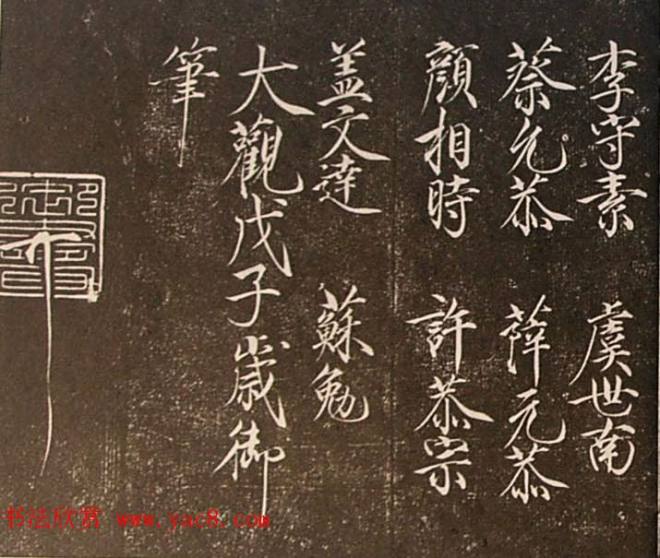 李守素 虞世南
蔡允恭 薛元恭
顔相時 許恭宗
盖文達 蘇勉
大觀戊子歲御
筆
书法欣赏 www.yac8.com